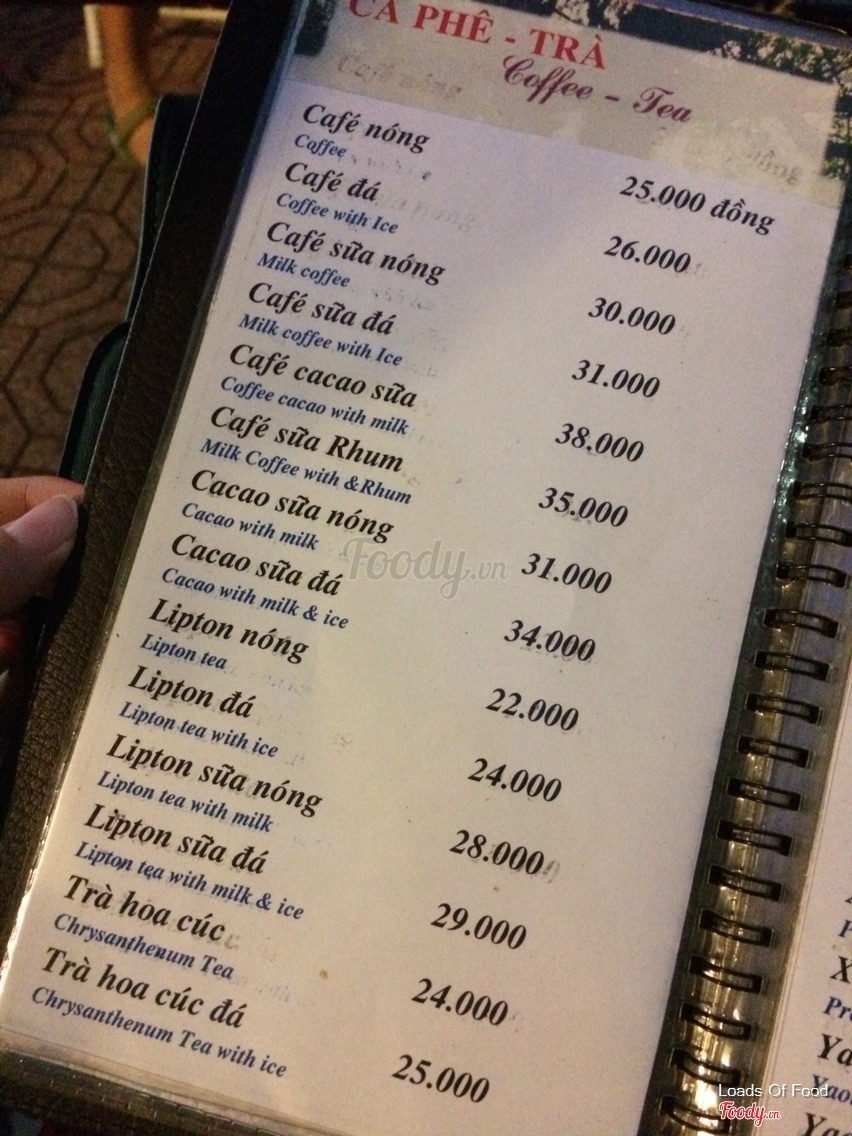 CÀ PHÊ - TRÀ
Coffee - Tea
Café nóng 25.000 đồng
Coffee
Café đá 26.000
Coffee with Ice
Café sữa nóng 30.000
Milk coffee
Café sữa đá 31.000
Milk coffee with Ice
Café cacao sữa 38.000
Coffee cacao with milk
Café sữa Rhum 35.000
Milk Coffee with &Rhum
Cacao sữa nóng 31.000
Cacao with milk
Cacao sữa đá 34.000
Cacao with milk & ice
Lipton nóng 22.000
Lipton tea
Lipton đá 24.000
Lipton tea with ice
Lipton sữa nóng 28.000
Lipton tea with milk
Lipton sữa đá 29.000
Lipton tea with milk & ice
Trà hoa cúc 24.000
Chrysanthenum Tea
Trà hoa cúc đá 25.000
Chrysanthenum Tea with ice
Foody.vn
Loads Of Food
Foody.vn